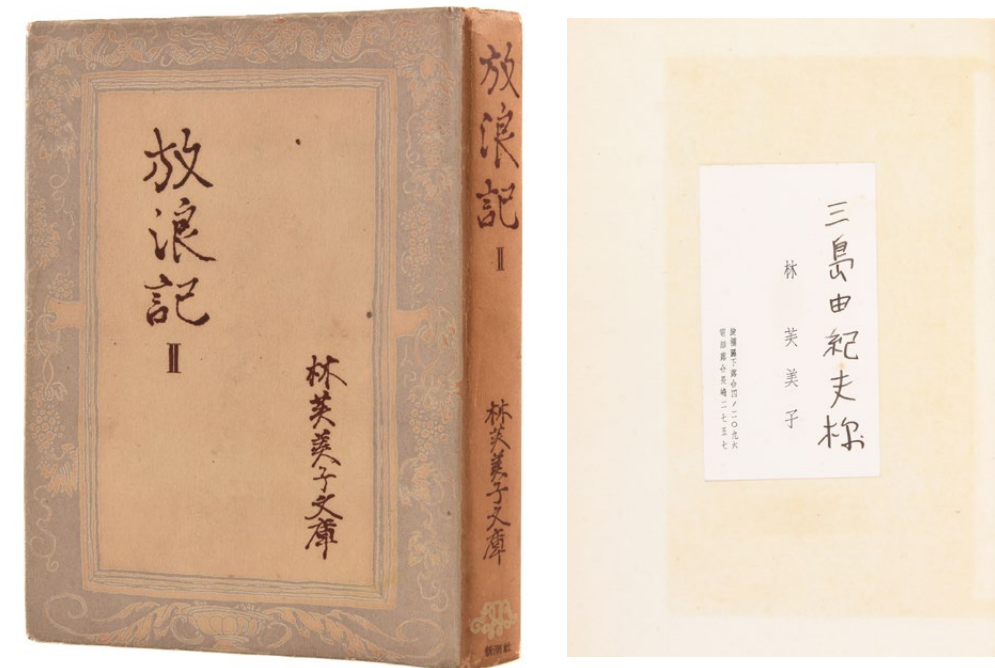 放浪記 Ⅱ
林芙美子文庫
放浪記 Ⅱ
林芙美子文庫
新潮社
三島由紀夫様
林 芙美子
淀橋區下落合四ノ二〇九六
電話落合長崎二七五七